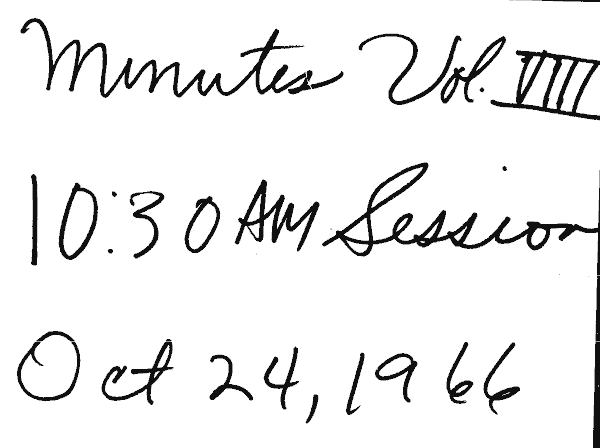 Minutes Vol. VIII
10:30 AM Session
Oct 24, 1966